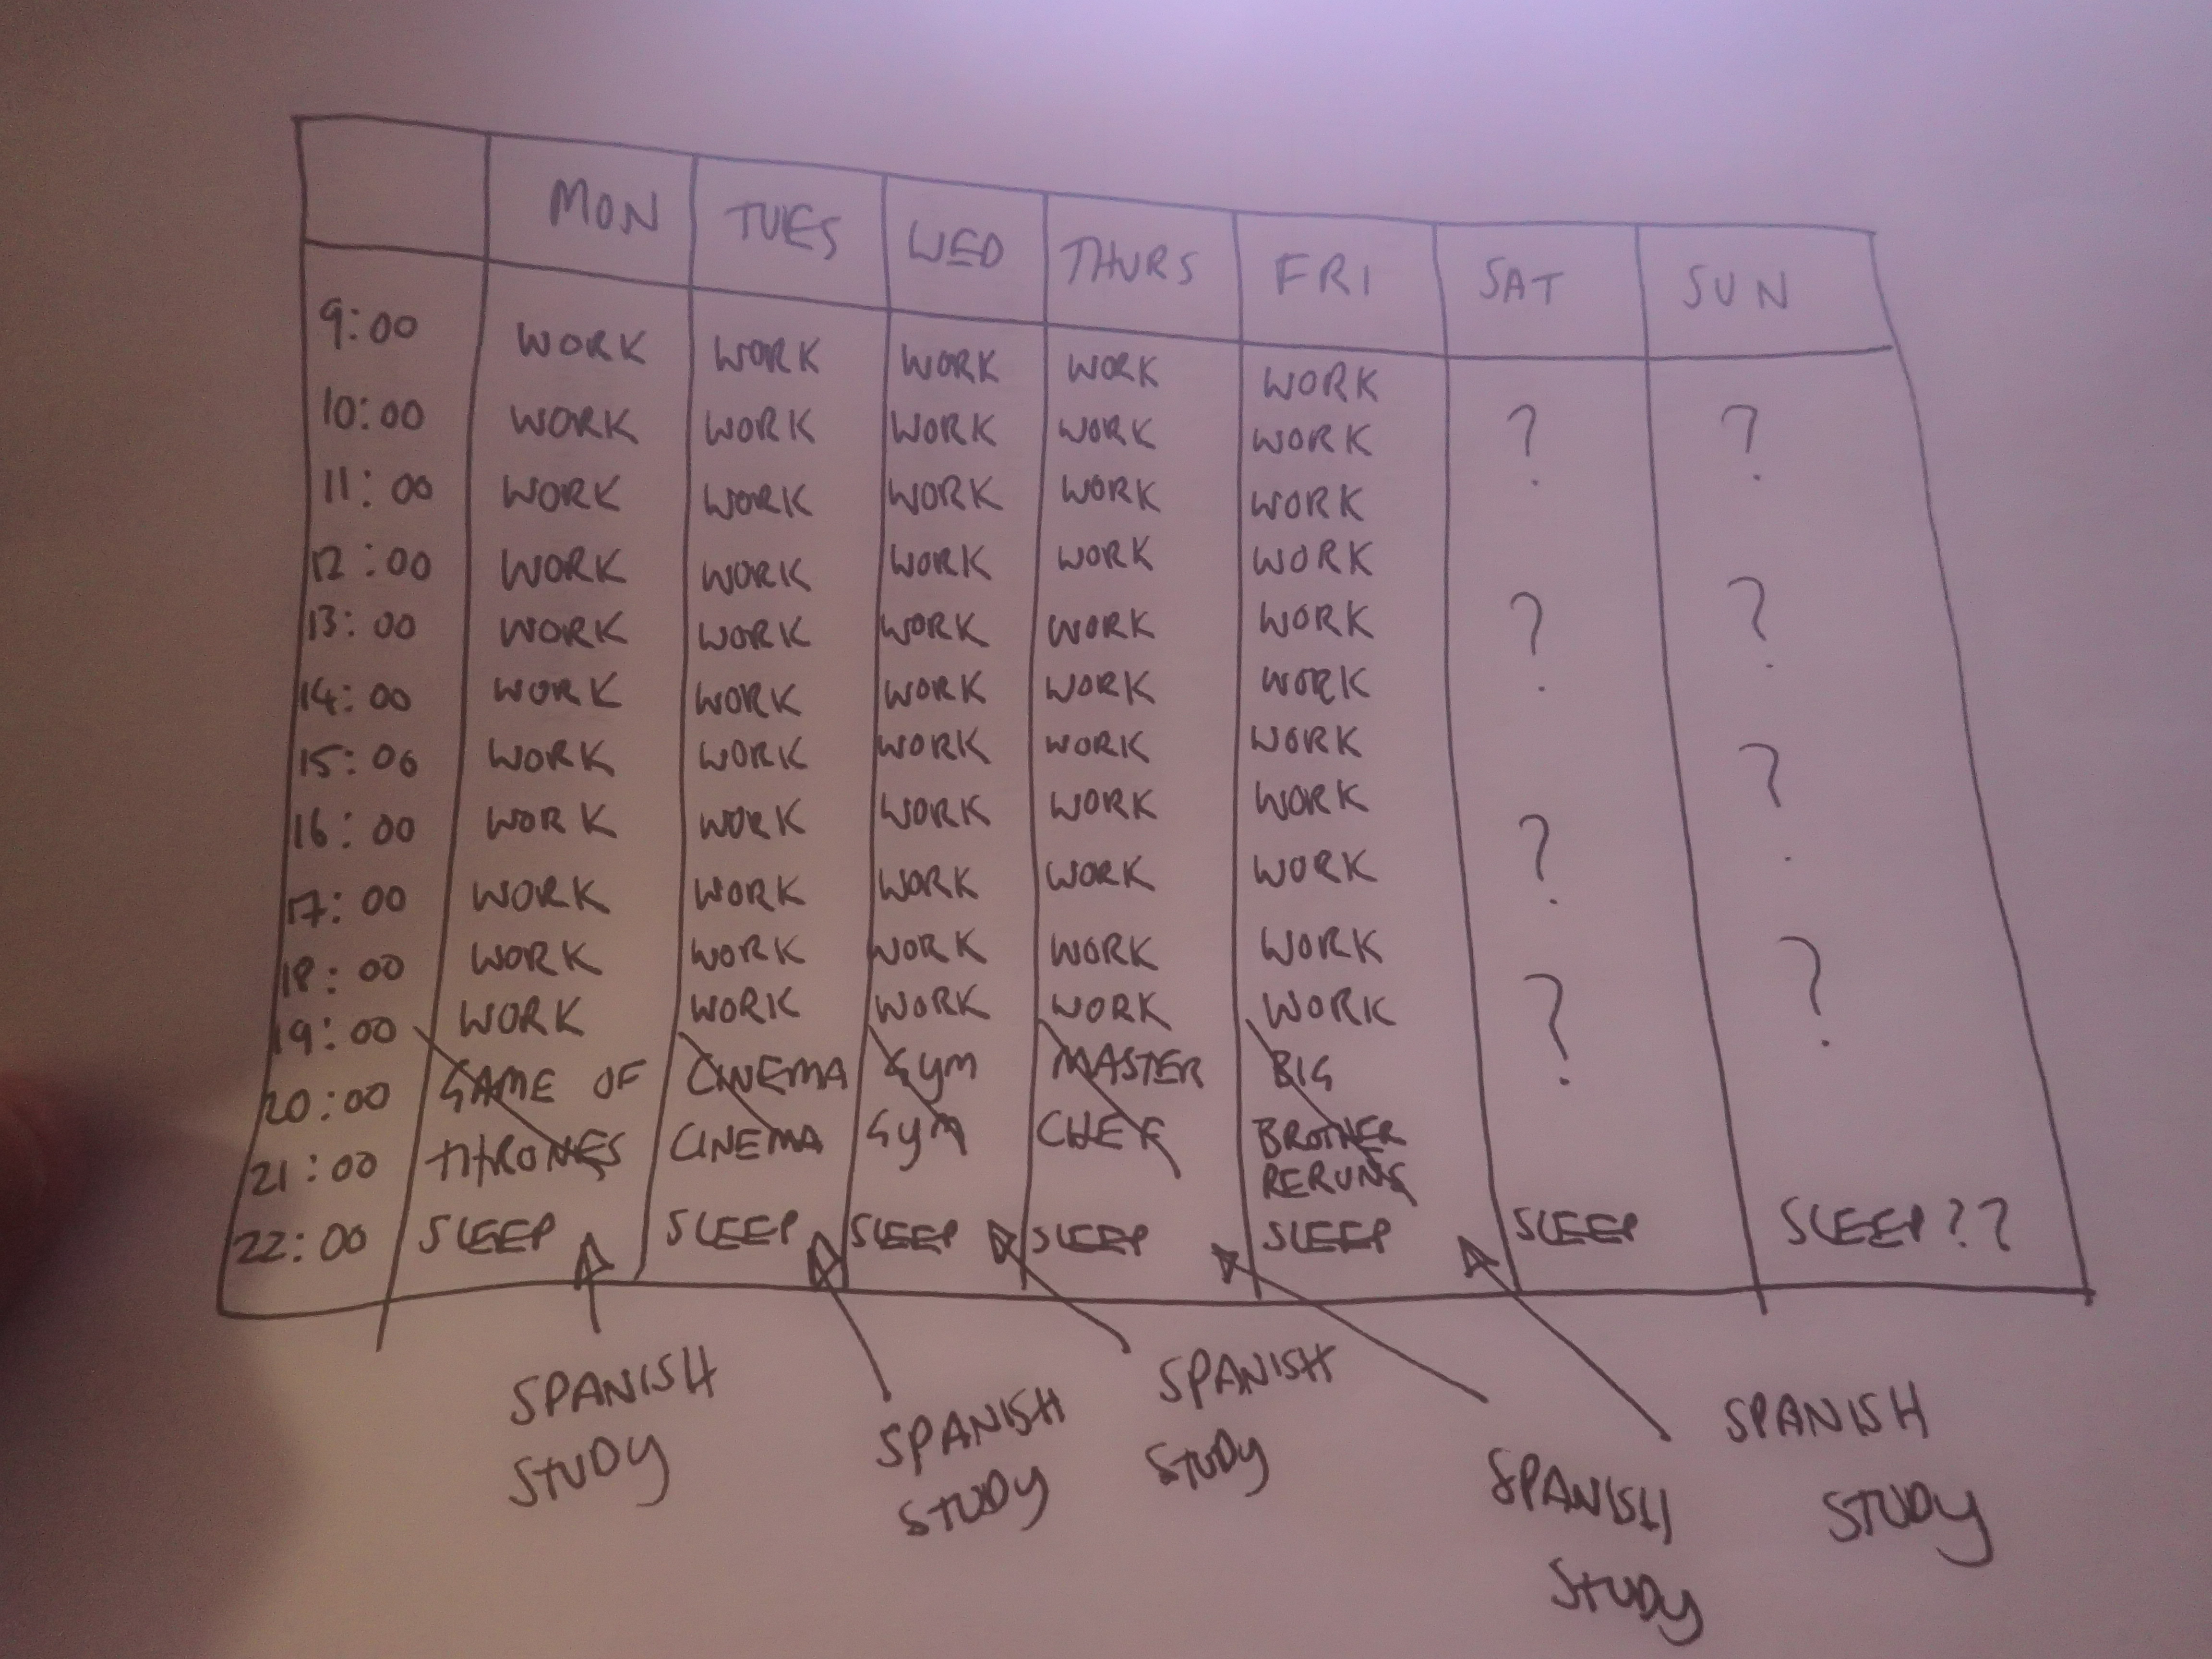 MON TUES WED THURS FRI SAT SUN
9:00 WORK WORK WORK WORK WORK
10:00 WORK WORK WORK WORK WORK ? ?
11:00 WORK WORK WORK WORK WORK
12:00 WORK WORK WORK WORK WORK
13:00 WORK WORK WORK WORK WORK ? ?
14:00 WORK WORK WORK WORK WORK
15:00 WORK WORK WORK WORK WORK ?
16:00 WORK WORK WORK WORK WORK ?
17:00 WORK WORK WORK WORK WORK
18:00 WORK WORK WORK WORK WORK ?
19:00 WORK WORK WORK WORK WORK ?
20:00 GAME OF CINEMA GYM MASTER BIG
21:00 THRONES CINEMA GYM CHEF BROTHER
RERUNS
22:00 SLEEP SLEEP SLEEP SLEEP SLEEP SLEEP SLEEP??
SPANISH
STUDY
SPANISH
STUDY
SPANISH
STUDY
SPANISH
STUDY
SPANISH
STUDY